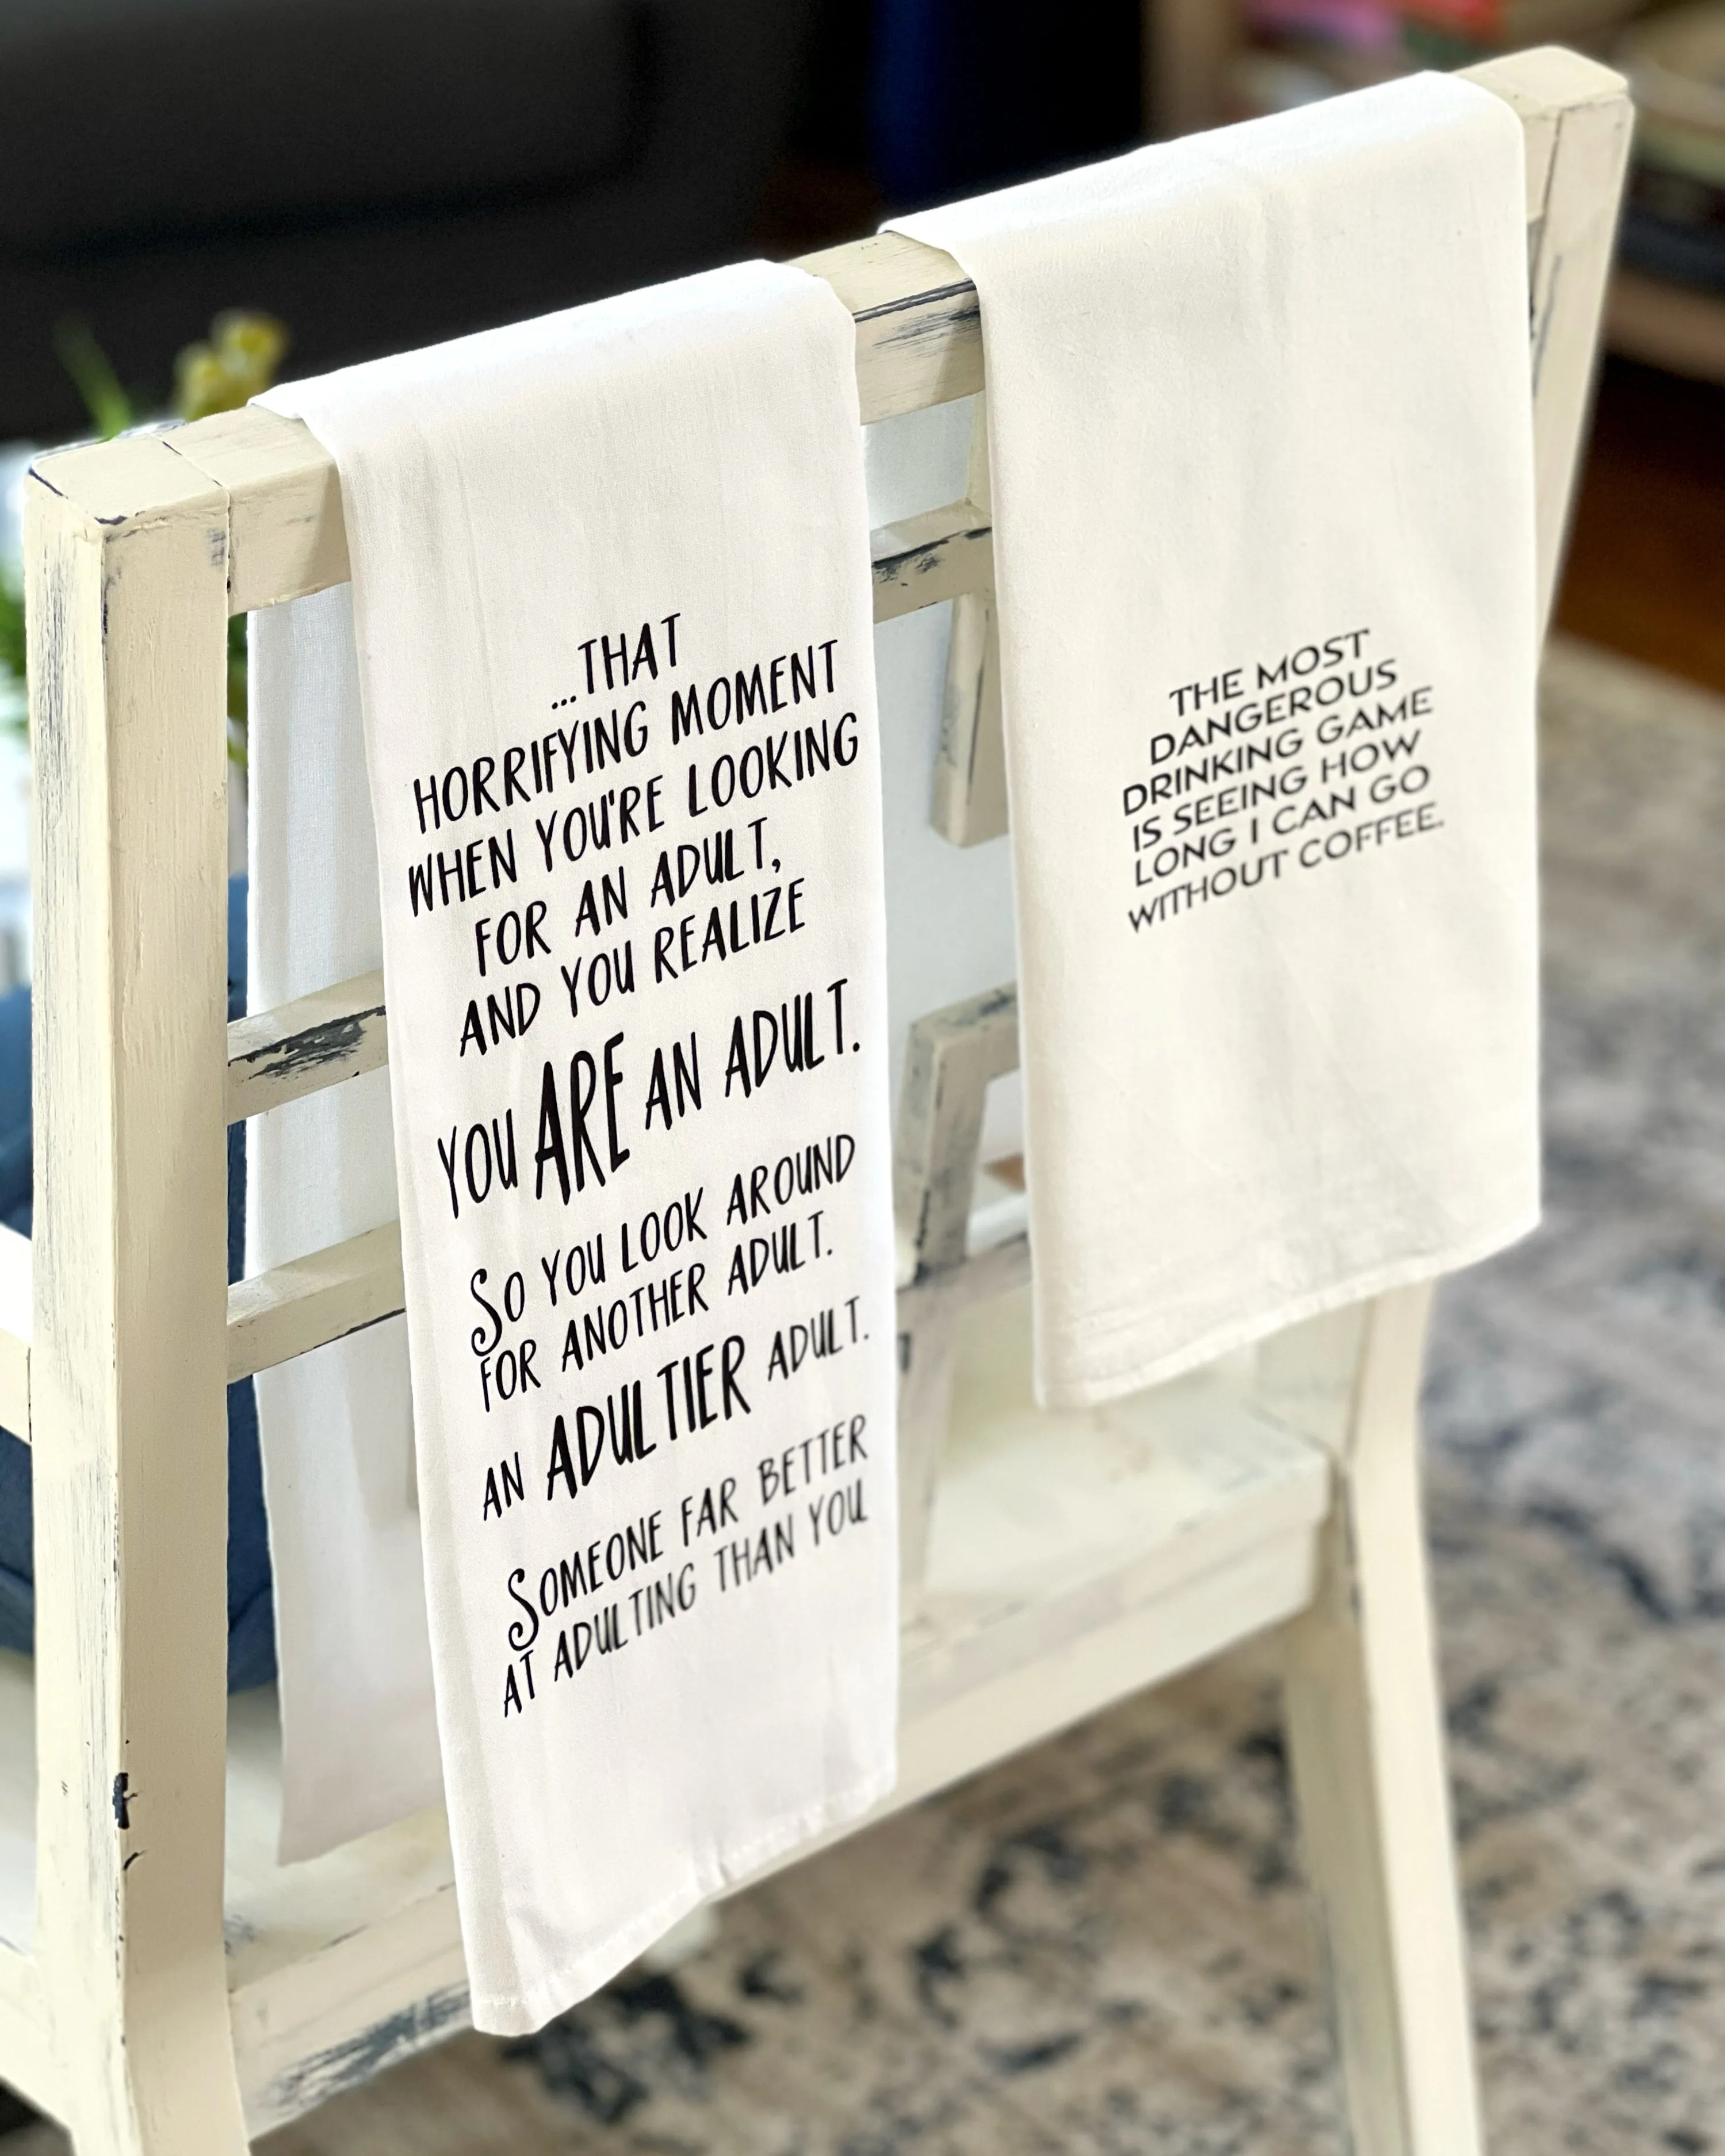 ...THAT
HORRIFYING MOMENT
WHEN YOU'RE LOOKING
FOR AN ADULT,
AND YOU REALIZE
YOU ARE AN ADULT.
SO YOU LOOK AROUND
FOR ANOTHER ADULT.
AN ADULTIER ADULT.
SOMEONE FAR BETTER
AT ADULTING THAN YOU
THE MOST
DANGEROUS
DRINKING GAME
IS SEEING HOW
LONG I CAN GO
WITHOUT COFFEE.